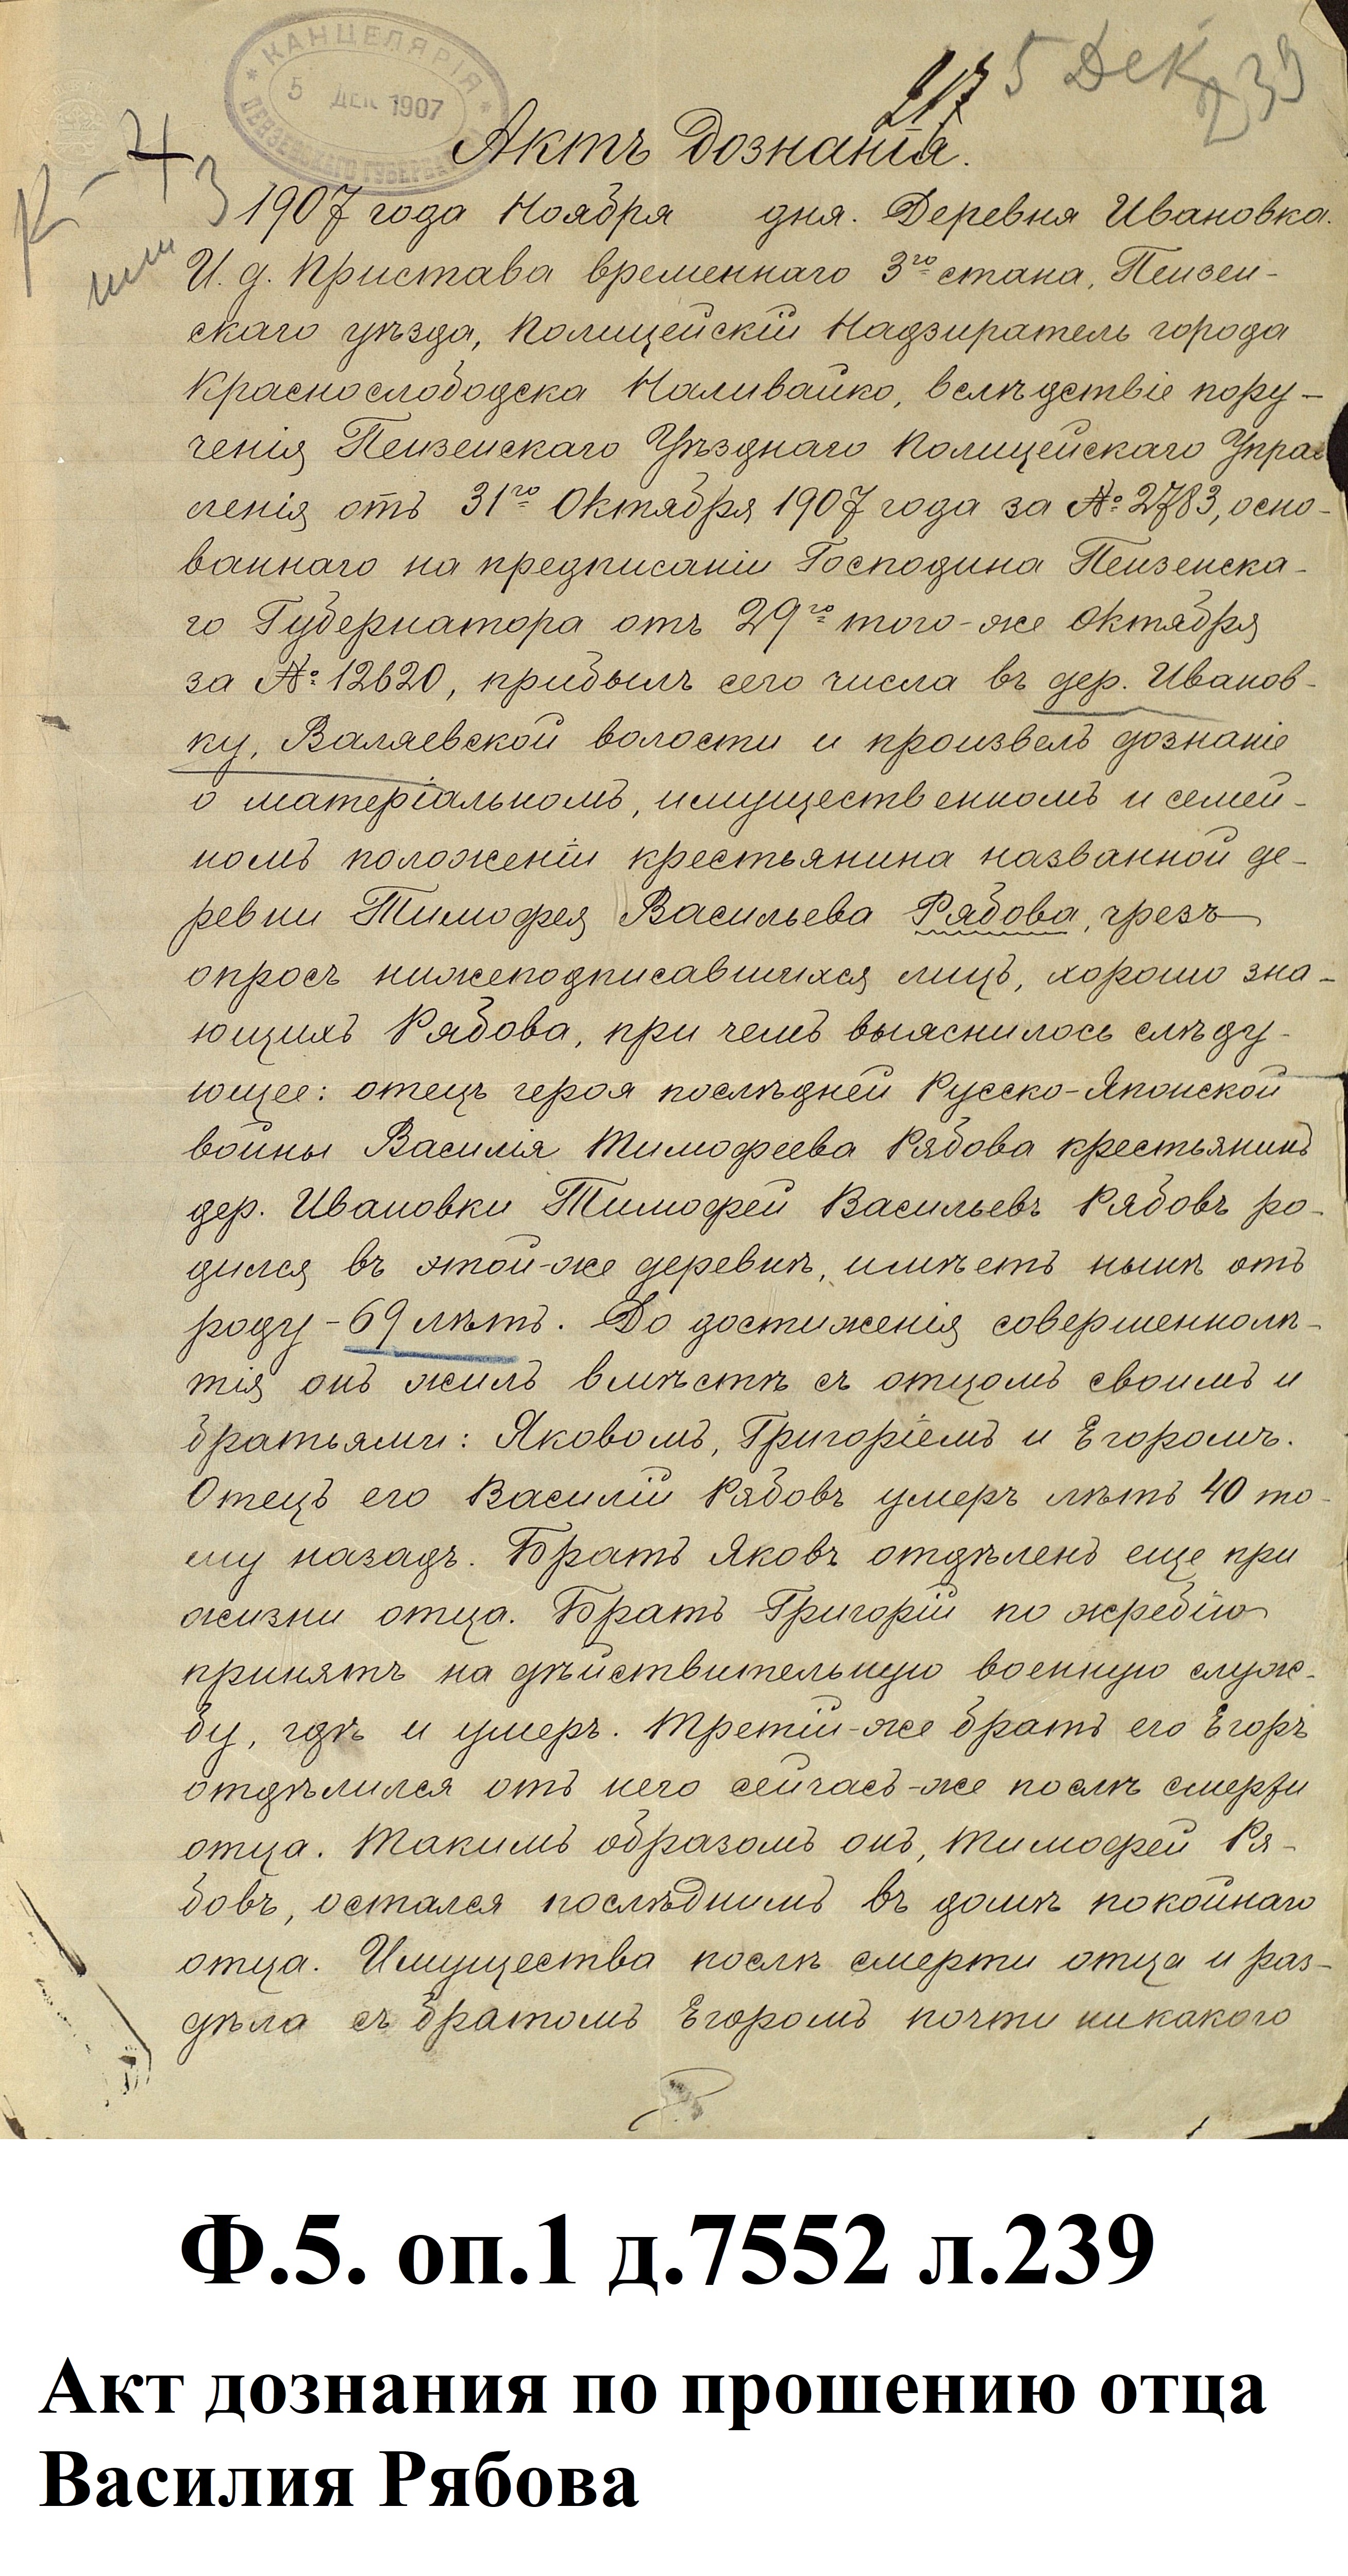 КАНЦЕЛЯРІЯ
5 ДЕК 1907
217
5 Дек
239
Актъ Дознанія.
1907 года Ноября дня. Деревня Ивановка.
И. д. Пристава временнаго 3го стана, Пензен-
скаго уѣзда, Полицейскій Надзиратель города
Краснослободска Наливайко, вслѣдствіе пору-
ченія Пензенскаго Уѣзднаго Полицейскаго Управ
ленія отъ 31го Октября 1907 года за № 2783, осно-
ваннаго на предписаніи Господина Пензенска-
го Губернатора отъ 29го того-же Октября
за № 12620, прибылъ сего числа въ дер. Иванов-
ку, Валяевской волости и произвелъ дознаніе
о матеріальномъ, имущественномъ и семей-
номъ положеніи крестьянина названной де-
ревни Тимофея Васильева Рябова, чрезъ
опросъ нижеподписавшихся лицъ, хорошо зна-
ющихъ Рябова, при чемъ выяснилось слѣду-
ющее: отецъ героя послѣдней Русско-Японской
войны Василія Тимофеева Рябова крестьянинъ
дер. Ивановки Тимофей Васильевъ Рябовъ ро-
дился въ этой-же деревнѣ, имѣетъ нынѣ отъ
роду - 69 лѣтъ. До достиженія совершеннолѣ-
тія онъ жилъ вмѣстѣ съ отцомъ своимъ и
братьями: Яковомъ, Григоріемъ и Егоромъ.
Отецъ его Василій Рябовъ умеръ лѣтъ 40 то-
му назадъ. Братъ Яковъ отдѣленъ еще при
жизни отца. Братъ Григорій по жребію
принятъ на дѣйствительную военную служ-
бу, гдѣ и умеръ. Третій-же братъ его Егоръ
отдѣлился отъ него сейчасъ-же послѣ смерти
отца. Такимъ образомъ онъ, Тимофей Ря-
бовъ, остался послѣднимъ въ домѣ покойнаго
отца. Имущества послѣ смерти отца и раз-
дѣла съ братомъ Егоромъ почти никакого
Ф.5. оп.1 д.7552 л.239
Акт дознания по прошению отца
Василия Рябова